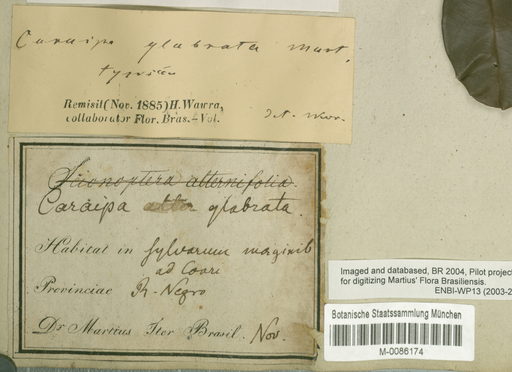 Caraipa glabrata Mart.
Remisit (Nov. 1885) H. Wawra,
collaborator Flor. Bras. – Vol.
Caraipa glabrata.
Habitat in sylvarum marginib
ad Coari
Provinciae R. Negro
Dr Martius Iter Brasil. Nov.
Imaged and databased, BR 2004, Pilot project
for digitizing Martius' Flora Brasiliensis.
ENBI-WP13 (2003-2
Botanische Staatssammlung München
M-0086174